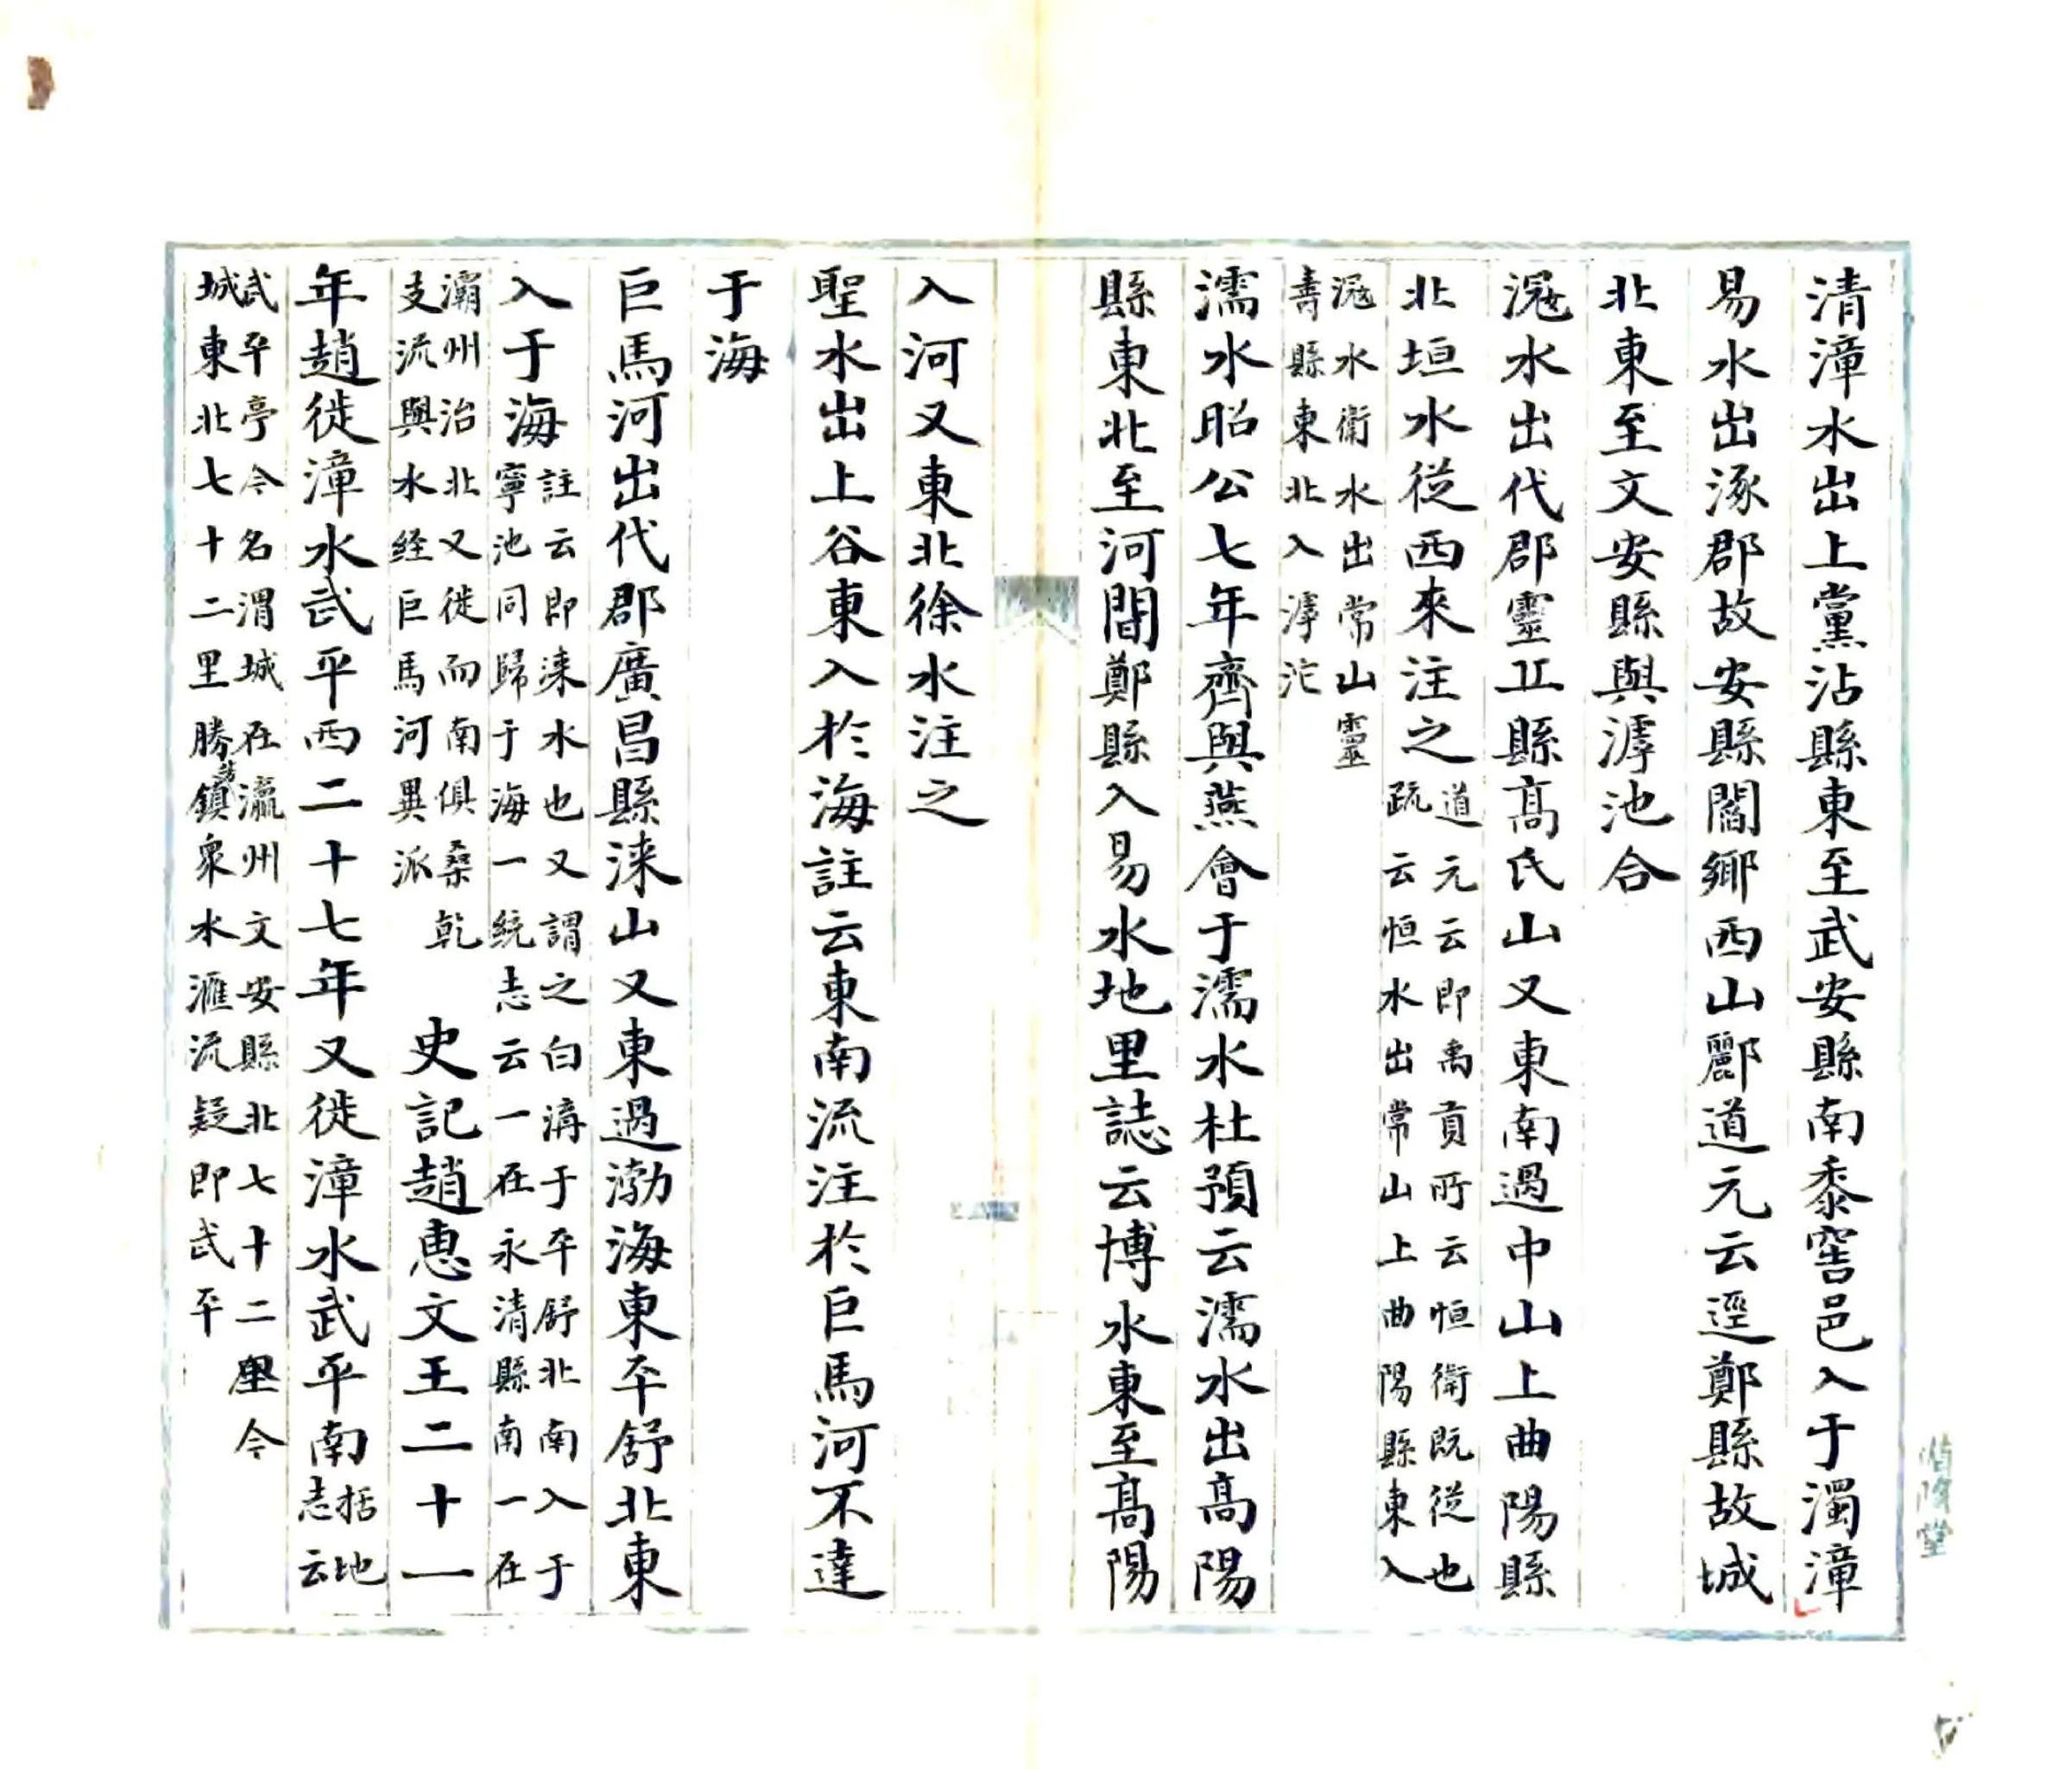 清漳水出上黨沾縣東至武安縣南黍窖邑入于濁漳
易水出涿郡故安縣閻鄉西山酈道元云逕鄭縣故城
北東至文安縣與滹池合
滱水出代郡靈丘縣高氏山又東南過中山上曲陽縣
北垣水從西來注之道元云即禹貢所云恒衛既從也
疏云恒水出常山上曲陽縣東入
滱水衛水出常山靈
壽縣東北入滹沱
濡水昭公七年齊與燕會于濡水杜預云濡水出高陽
縣東北至河間鄭縣入易水地里誌云博水東至高陽
入河又東北徐水注之
聖水出上谷東入於海註云東南流注於巨馬河不達
于海
巨馬河出代郡廣昌縣淶山又東過渤海東平舒北東
入于海註云即淶水也又謂之白溝于平舒北南入于
寧池同歸于海一統志云一在永清縣南一在
灞州治北又徙而南俱桑乾
支流與水經巨馬河異派
史記趙惠文王二十一
年趙徙漳水武平西二十七年又徙漳水武平南括地
志云
武平亭今名渭城在瀛州文安縣北七十二里今
城東北七十二里勝芳鎮衆水滙流疑即武平